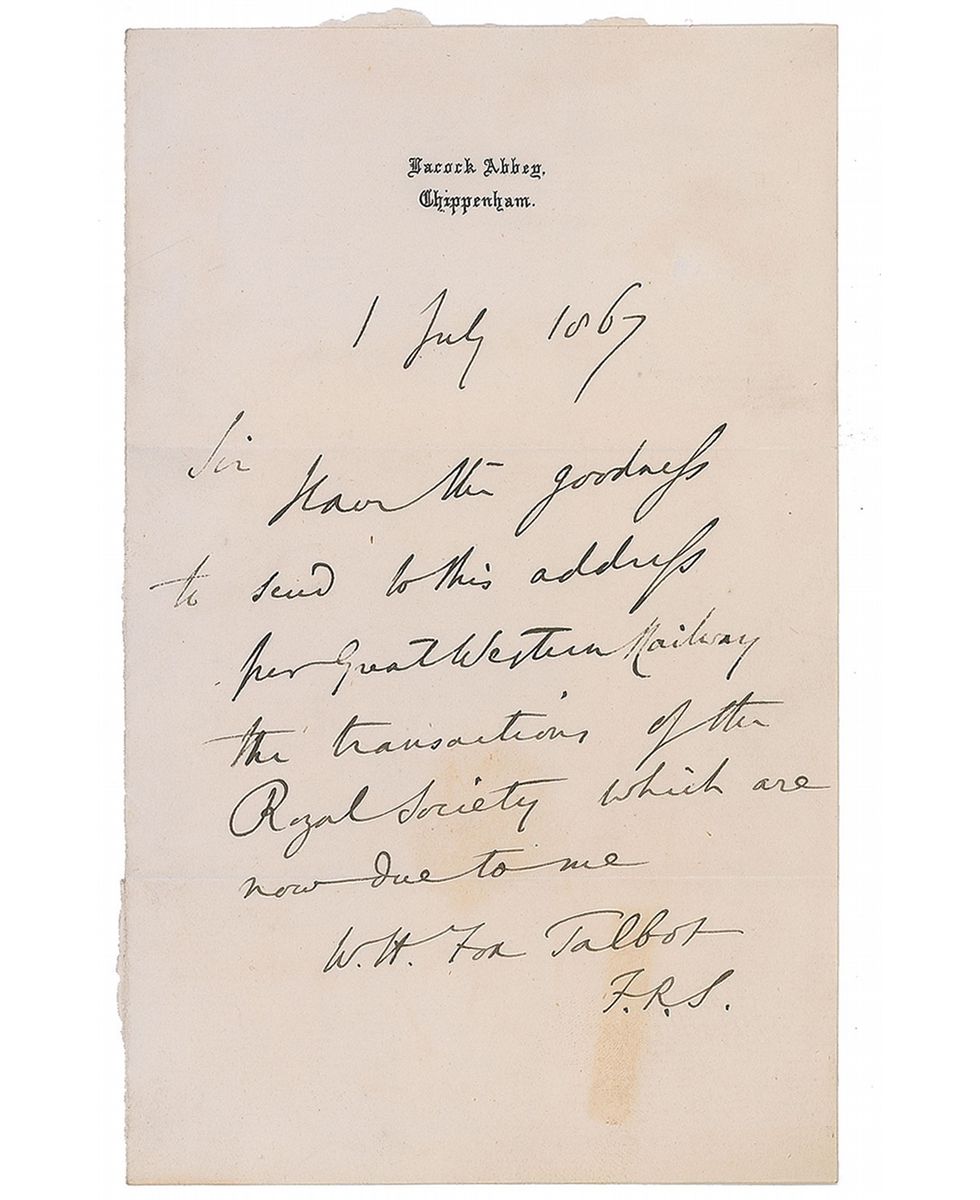 Lacock Abbey,
Chippenham.
1 July 1867
Sir
Have the goodness
to send to this address
per Great Western Railway
the transactions of the
Royal Society which are
now due to me
W. H. Fox Talbot
F.R.S.